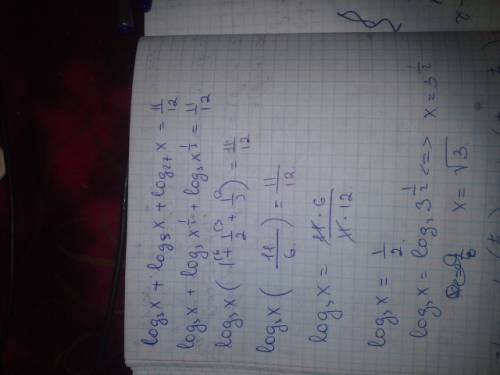 log₃x + log₉x + log₂₇x = 11/12
log₃x + log₃x^(1/2) + log₃x^(1/3) = 11/12
log₃x (1^(\6) + 1/2^(\3) + 1/3^(\2)) = 11/12
log₃x (11/6) = 11/12
log₃x = 11·6/11·12
log₃x = 1/2
log₃x = log₃3^(1/2) <=> x = 3^(1/2)
x = √3